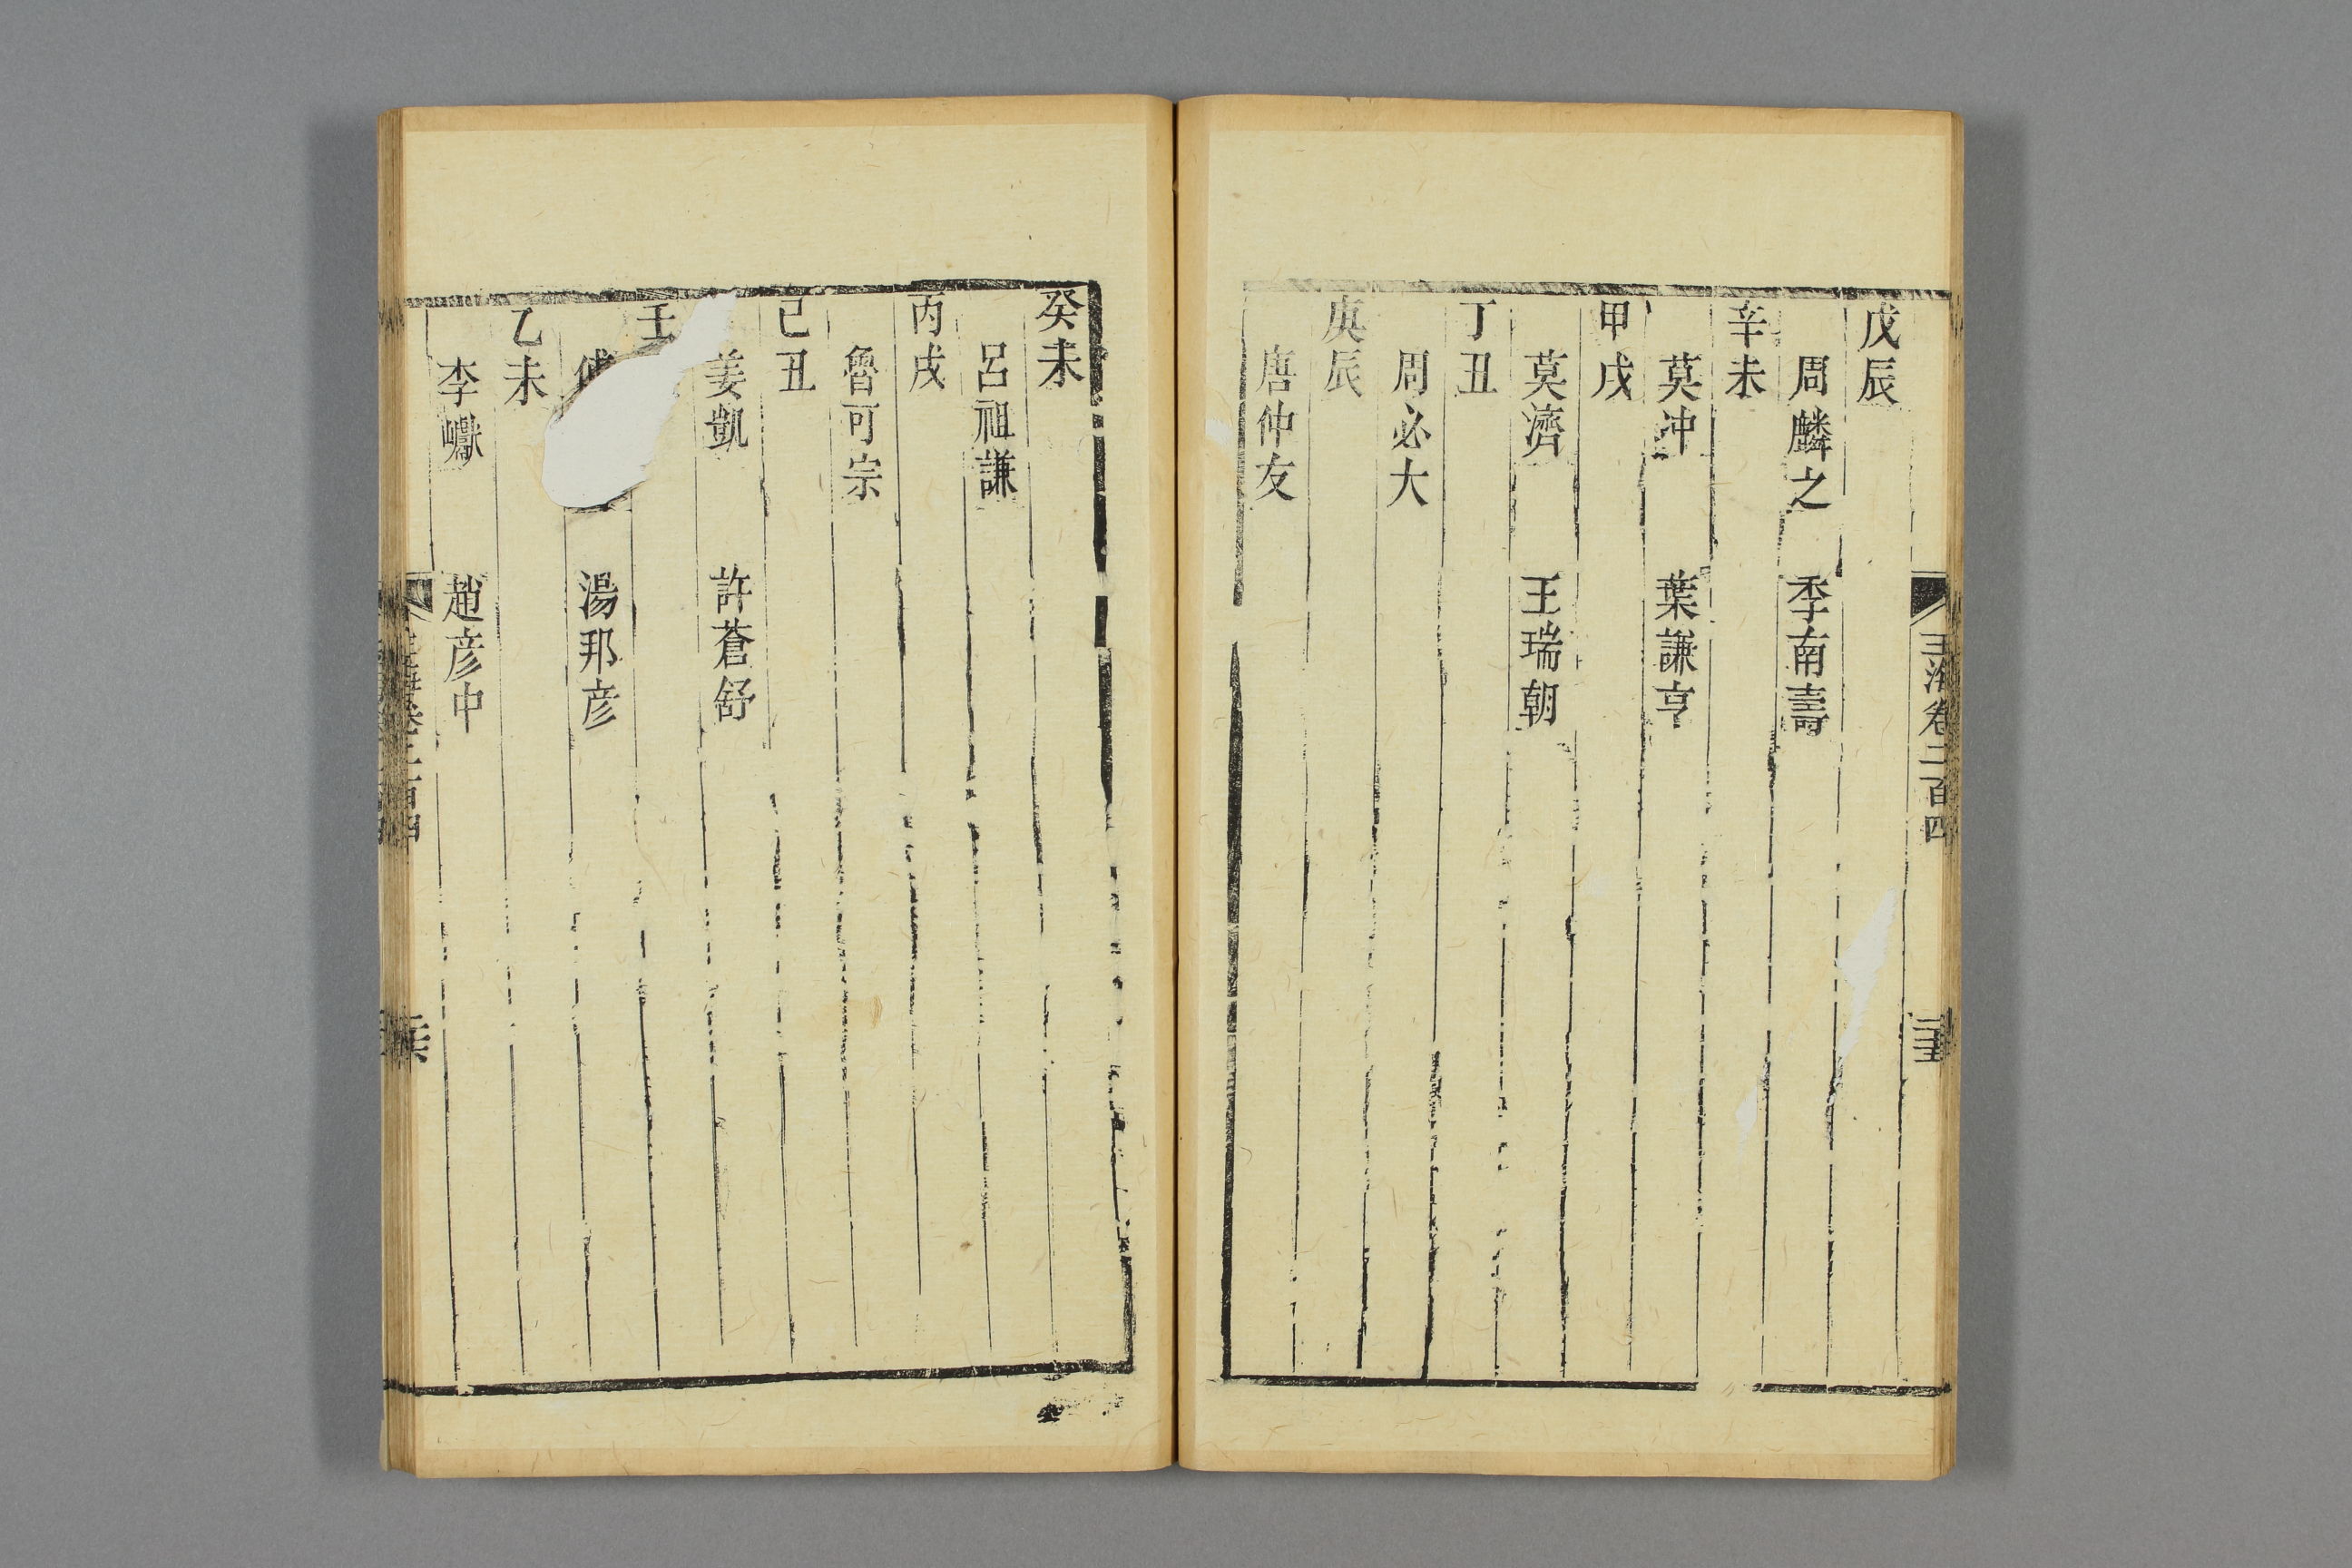 玉海卷二百四
戊辰
周麟之 季南壽
辛未
莫沖 葉謙亨
甲戌
莫濟 王瑞朝
丁丑
周必大
庚辰
唐仲友
癸未
呂祖謙
丙戌
魯可宗
己丑
姜凱 許蒼舒
壬
湯邦彦
乙未
李巘 趙彦中